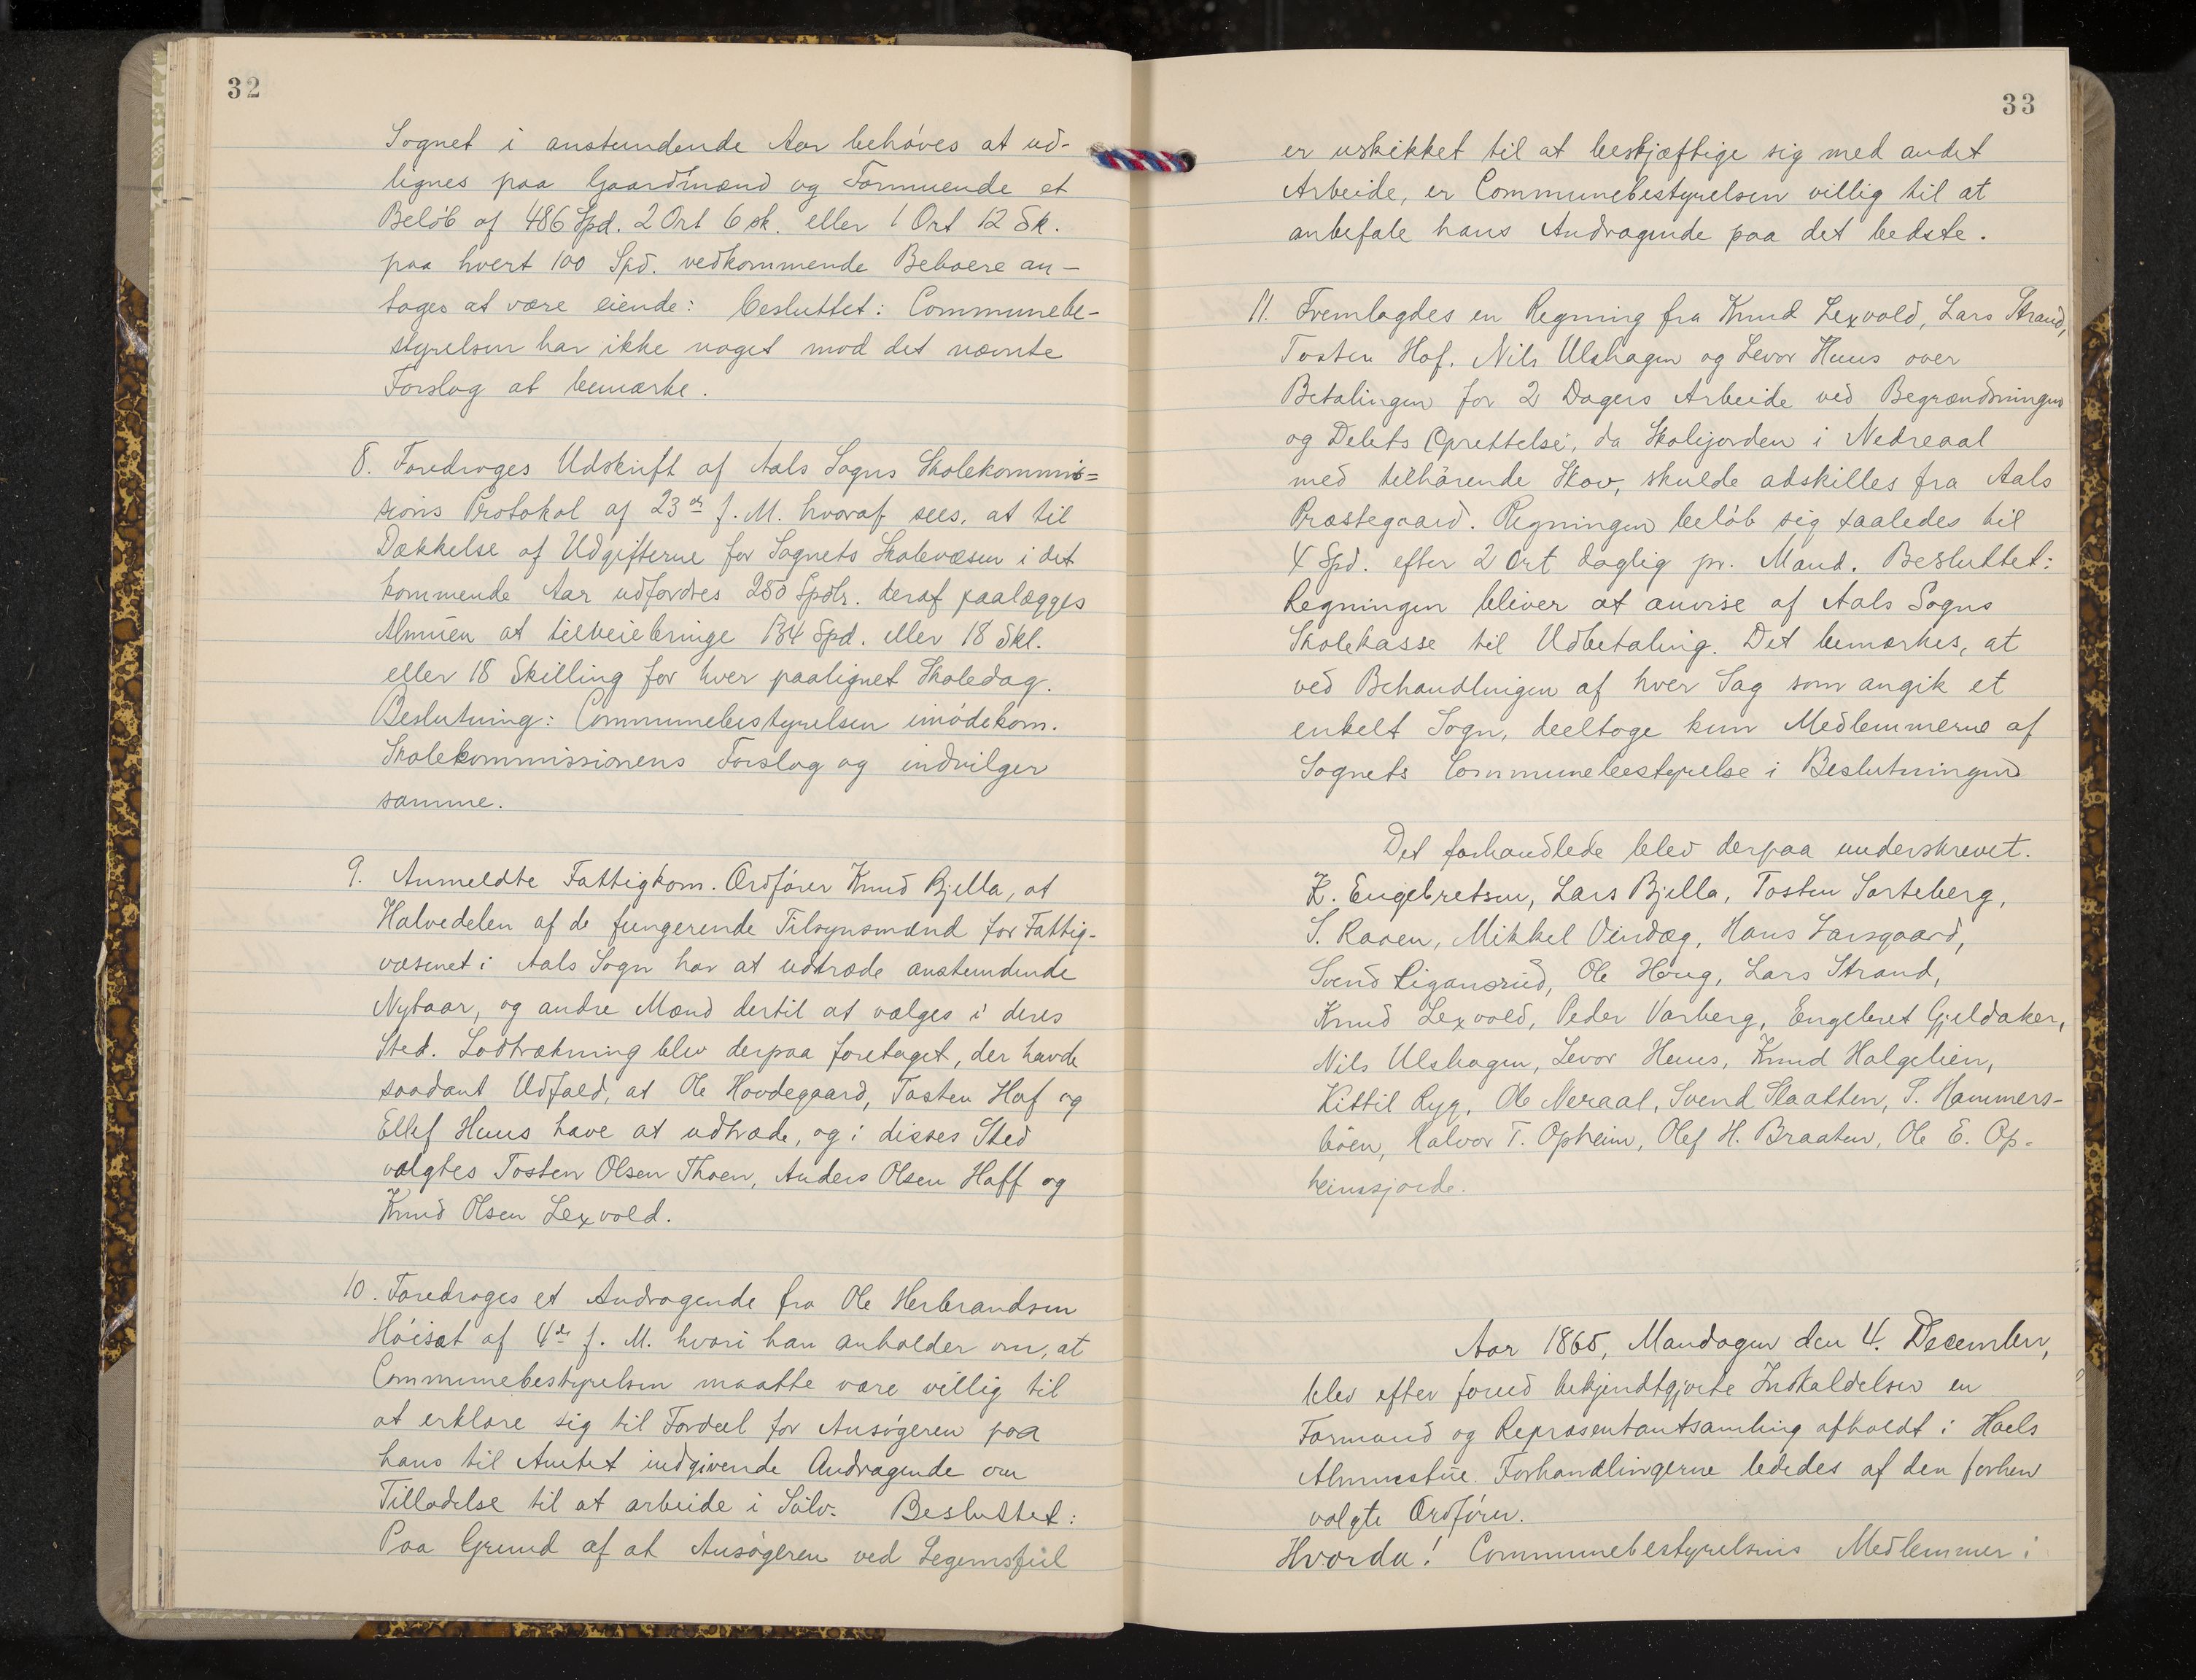 32
Sognet i anstundende Aar behóves at ud-
lignes paa Gaardmænd og Formuende et
Belób af 486 Spd. 2 Ort 6 sk. eller 1 Ort 12 Sk.
paa hvert 100 Spd. vedkommende Beboere an-
tages at være eiende: besluttet: Communebe-
styrelsen har ikke noget mod det nævnte
Forslag at bemærke.
8. Foredroges Udskrift af Aals Sogns Skolekommis=
sions Protokol af 23de f. M. hvoraf sees, at til
Dækkelse af Udgifterne for Sognets Skolevæsen i det
kommende Aar udfordres 250 Spdlr. deraf paalægges
Almuen at tilveiebringe 134 Spd. eller 18 Skl.
eller 18 Skilling for hver paalignet Skoledag.
Beslutning: Communebestyrelsen imódekom.
Skolekommissionens Forslag og indvilger
samme.
9. Anmeldte Fattigkom. Ordfórer Knud Bjella, at
Halvedelen af de fungerende Tilsynsmænd for Fattig-
væsenet i Aals Sogn har at udtræde anstundende
Nytaar, og andre Mænd dertil at vælges i deres
Sted. Lodtrækning blev derpaa foretaget, der havde
saadant Udfald, at Ole Hovdegaard, Tosten Hof og
Ellef Huus have at udtræde, og i disses Sted
valgtes Tosten Olsen Thoen, Anders Olsen Hoff og
Knud Olsen Lexvold.
10. Foredroges et Andragende fra Ole Herbrandsen
Hóisæt af 4de f. M. hvori han anholder om, at
Communebestyrelsen maatte være villig til
at erklære sig til Fordeel for Ansógeren paa
hans til Amtet indgivende Andragende om
Tilladelse til at arbeide i Sólv. Besluttet:
Paa Grund af at Ansógeren ved Legemsfeil
33
er uskikket til at beskjæftige sig med andet
Arbeide, er Communebestyrelsen villig til at
anbefale hans Andragende paa det bedste.
11. Fremlagdes en Regning fra Knud Lexvold, Lars Strand,
Tosten Hof, Nils Ulshagen og Levor Huus over
Betalingen for 2 Dagers Arbeide ved Begrændsningen
og Delets Oprettelse, da Skolejorden i Nedreaal
med tilhórende Skov, skulde adskilles fra Aals
Præstegaard. Regningen belób sig saaledes til
4 Spd. efter 2 Ort daglig pr. Mand. Besluttet:
Regningen bliver at anvise af Aals Sogns
Skolekasse til Udbetaling. Det bemærkes, at
ved Behandlingen af hver Sag som angik et
enkelt Sogn, deeltoge kun Medlemmerne af
Sognets Communebestyrelse i Beslutningen
Det forhandlede blev derpaa underskrevet.
K. Engebretsen, Lars Bjella, Tosten Sorteberg,
S. Raaen, Mikkel Vindæg, Hans Larsgaard,
Svend Ligansrud, Ole Houg, Lars Strand,
Knud Lexvold, Peder Varberg, Engebret Gjeldaker,
Nils Ulshagen, Levor Huus, Knud Halgelien,
Kittil Ryg, Ole Neraal, Svend Slaatten, P. Hammers-
bóen, Halvor T. Opheim, Olef H. Braaten, Ole E. Op-
heimsjorde.
Aar 1865, Mandagen den 4. December,
blev efter forud bekjendtgjorte Indkaldelser en
Formand og Repræsentantsamling afholdt i Hols
Almuestue. Forhandlingerne lededes af den forhen
valgte Ordfórer.
Hvorda! Communebestyrelsens Medlemmer i